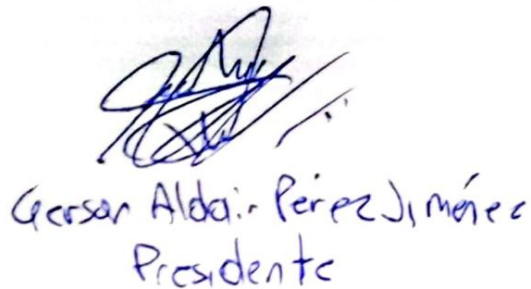 Gerson Aldair Pérez Jiménez
Presidente